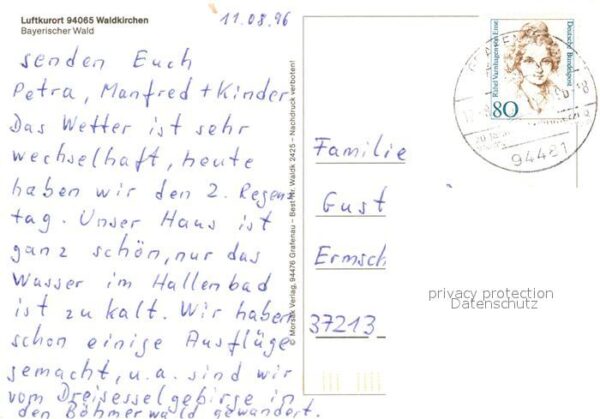 Luftkurort 94065 Waldkirchen
Bayerischer Wald
11.08.96
senden Euch
Petra, Manfred + Kinder
Das Wetter ist sehr
wechselhaft, heute
haben wir den 2. Regen
tag. Unser Haus ist
ganz schön, nur das
Wasser im Hallenbad
ist zu kalt. Wir haben
schon einige Ausflüge
gemacht, u.a. sind wir
vom Dreisesselgebirge in
den Böhmerwald gewandert.
© Morsak Verlag, 94476 Grafenau – Best.-Nr. Waldk 2425 – Nachdruck verboten!
Rahel Varnhagen von Ense
Deutsche Bundespost
80
94481
Familie
Gust
Ermsch
37213
privacy protection
Datenschutz